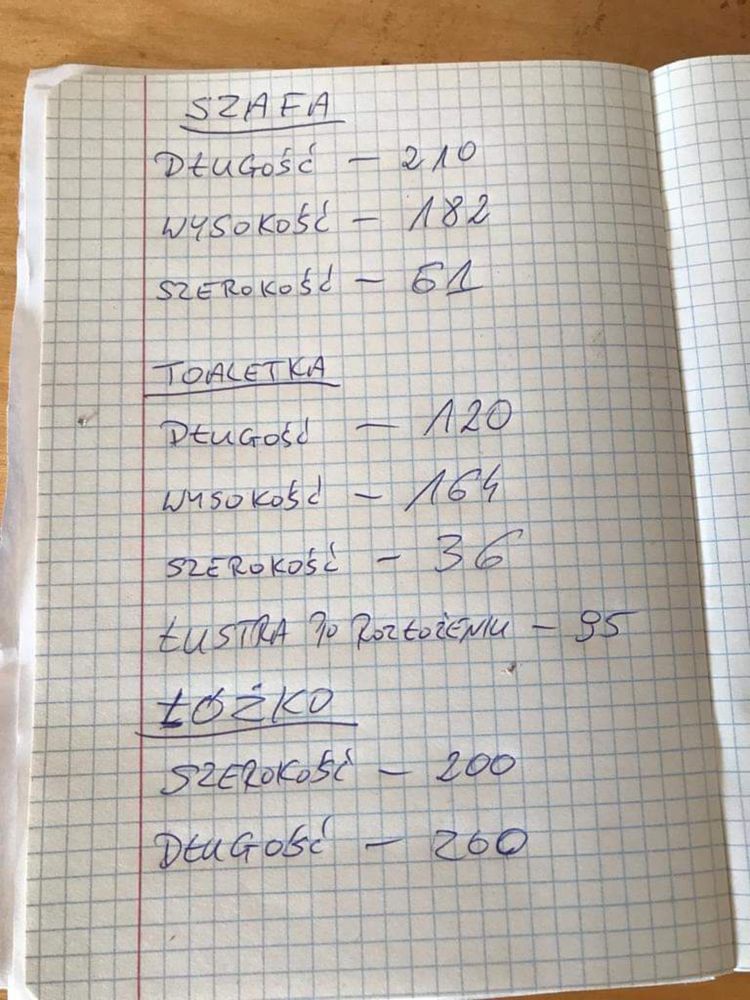 SZAFA
DŁUGOŚĆ - 210
WYSOKOŚĆ - 182
SZEROKOŚĆ - 61
TOALETKA
DŁUGOŚĆ - 120
WYSOKOŚĆ - 164
SZEROKOŚĆ - 36
ŁUSTRA PO ROZŁOŻENIU - 95
ŁÓŻKO
SZEROKOŚĆ - 200
DŁUGOŚĆ - 260